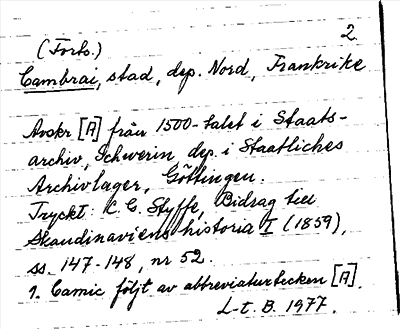 2
(Forts.)
Cambrai, stad, dep. Nord, Frankrike
Avskr [A] från 1500-talet i Staats-
archiv, Schwerin, dep. i Staatliches
Archivlager, Göttingen.
Tryckt: C. G. Styffe, Bidrag till
Skandinaviens historia I (1859),
ss. 147-148, nr 52.
1. Camic följt av abbreviaturtecken [A].
L-t. B. 1977.